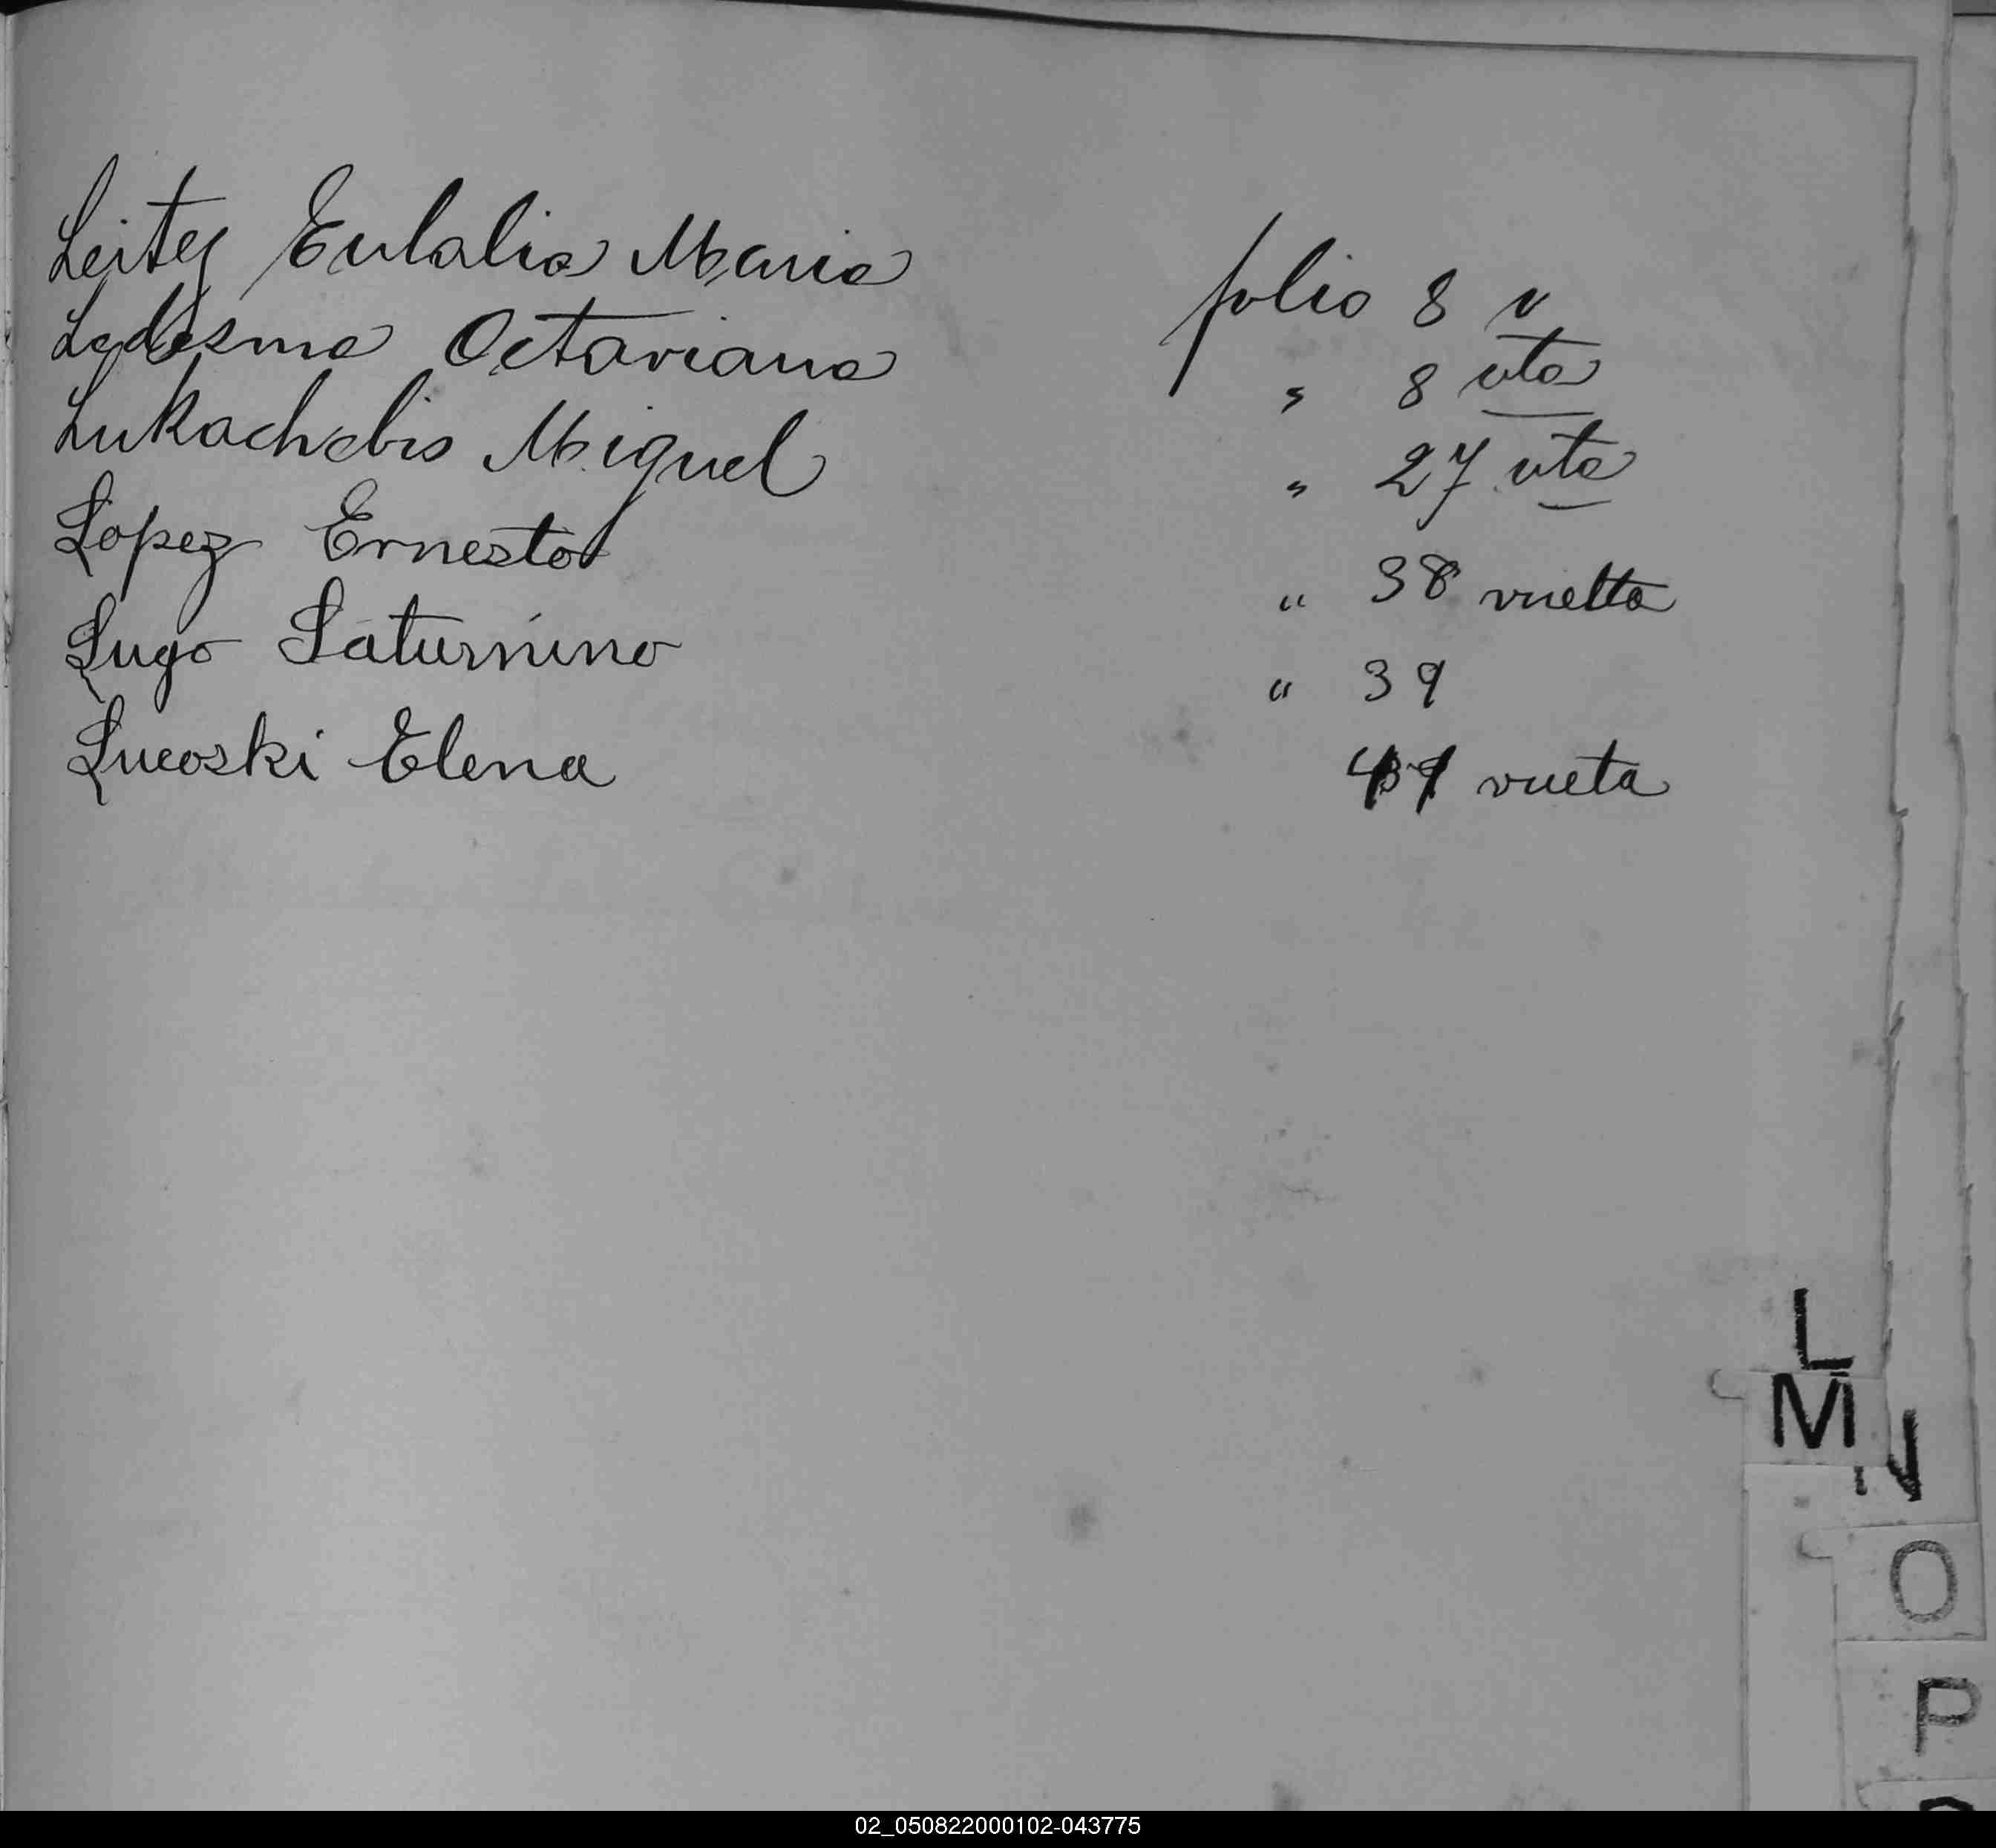 Leites Eulalia Maria folio 8 v
Ledesma Octaviana " 8 vta
Lukachebis Miguel " 27 vta
Lopez Ernesto " 38 vuelta
Lugo Saturnino " 39
Lucoski Elena vueta
L
M
N
O
P
02_050822000102-043775